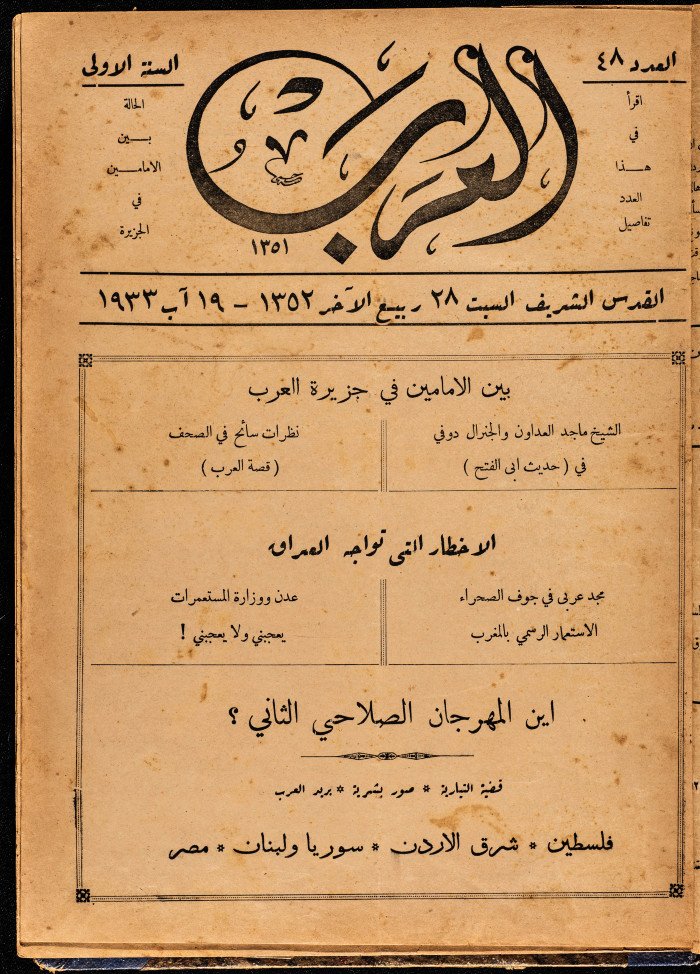 العدد ٤٨
السنة الاولى
اقرأ
في
هذا
العدد
تفاصيل
العرب
١٣٥١
الحالة
بين
الامامين
في
الجزيرة
القدس الشريف السبت ٢٨ ربيع الآخر ١٣٥٢ - ١٩ آب ١٩٣٣
بين الامامين في جزيرة العرب
الشيخ ماجد العداون والجنرال دوفي
في ( حديث ابى الفتح )
نظرات سائح في الصحف
( قصة العرب )
الاخطار التي تواجه العراق
مجد عربى في جوف الصحراء
الاستعمار الرسمي بالمغرب
عدن ووزارة المستعمرات
يعجبني ولا يعجبني !
اين المهرجان الصلاحي الثاني ؟
قضية التيارية * صور بشرية * بريد العرب
فلسطين * شرق الاردن * سوريا ولبنان * مصر